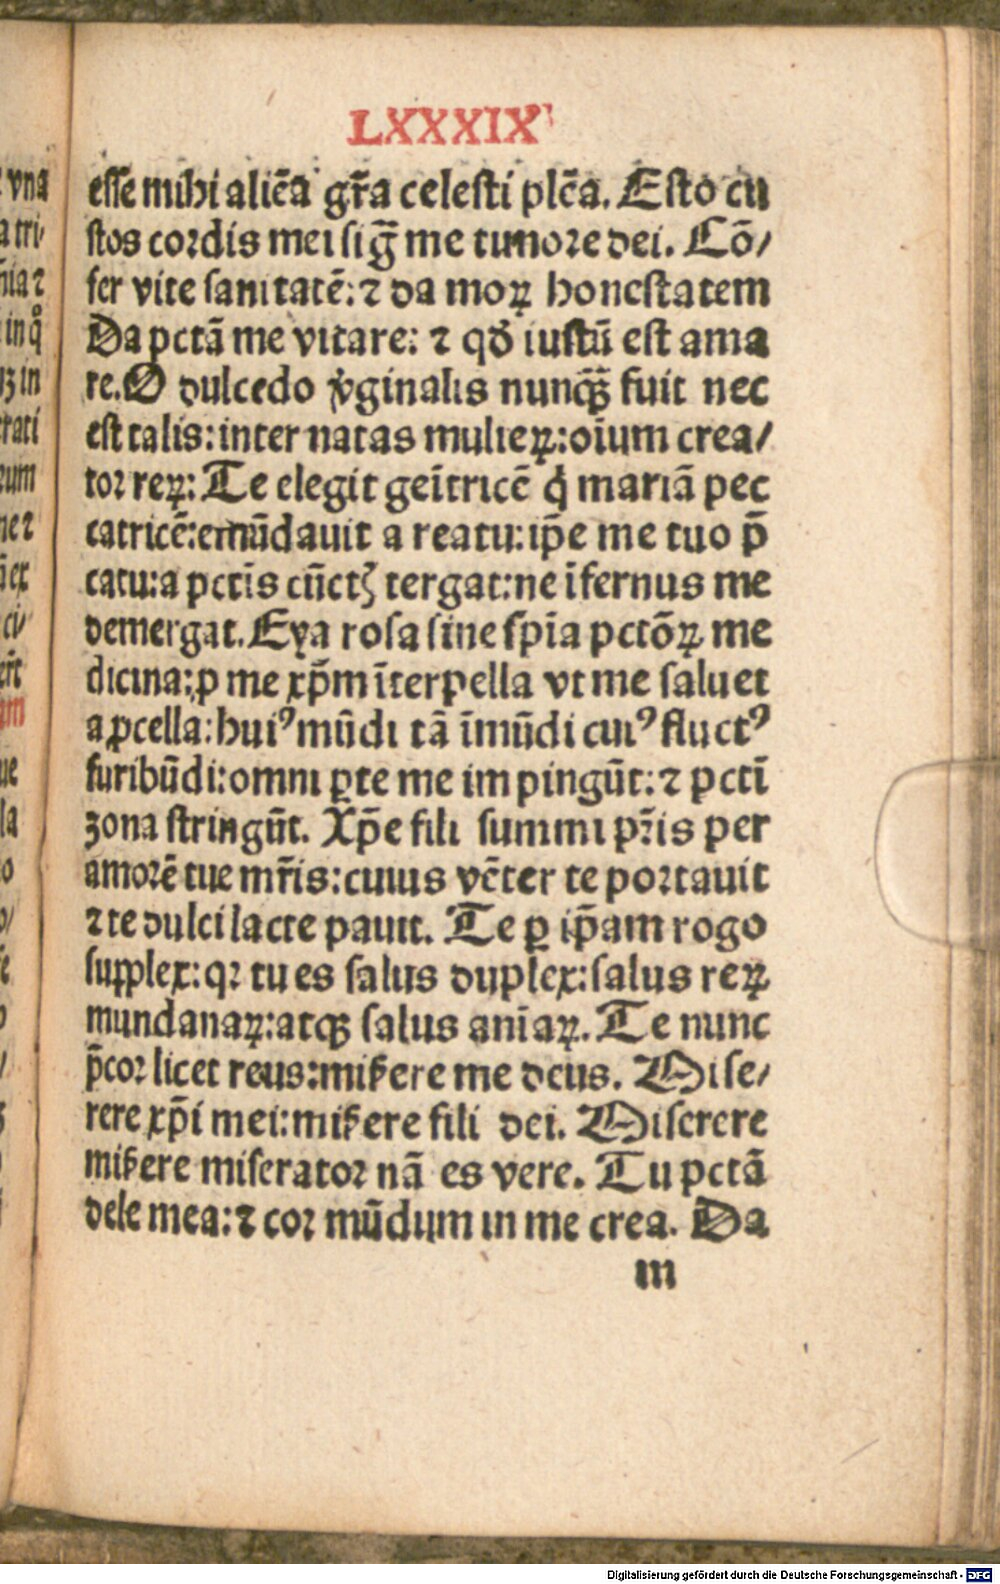 LXXXIX
esse mihi aliēa gr̄a celesti plēa. Esto cu
stos cordis mei siḡ me timore dei. Cō/
fer vite sanitatē: ⁊ da moꝝ honestatem
Da pctā me vitare: ⁊ qđ iustū est ama
re. O dulcedo v̓ginalis nunqꝫ fuit nec
est talis: inter natas mulieꝝ: oīum crea/
tor reꝝ: Te elegit geītricē q̇ mariā pec
catricē: emūdauit a reatu: ip̄e me tuo p̄
catu: a pctis cūctꝭ tergat: ne īfernus me
demergat. Eya rosa sine spīa pctōꝝ me
dicina: ꝓ me xp̄m īterpella vt me saluet
a ꝓcella: huiꝰ mūdi tā īmūdi cuiꝰ fluctꝰ
furibūdi: omni ꝑte me impingūt: ⁊ pctī
zona stringūt. Xp̄e fili summi pr̄is per
amorē tue mr̄is: cuius vēter te portauit
⁊ te dulci lacte pauit. Te ꝑ ip̄am rogo
supplex: qꝛ tu es salus duplex: salus reꝝ
mundanaꝝ: atqꝫ salus aniaꝝ. Te nunc
p̄cor licet reus: mis̄ere me deus. Mise/
rere xp̄i mei: mis̄ere fili dei. Miserere
mis̄ere miserator nā es vere. Tu pctā
dele mea: ⁊ cor mūdum in me crea. Da
m
vna
a tri/
nia ⁊
in q̊
ꝫ in
rati
rum
ne ⁊
ex
ci/
am
ue
la
o
Digitalisierung gefördert durch die Deutsche Forschungsgemeinschaft - DFG